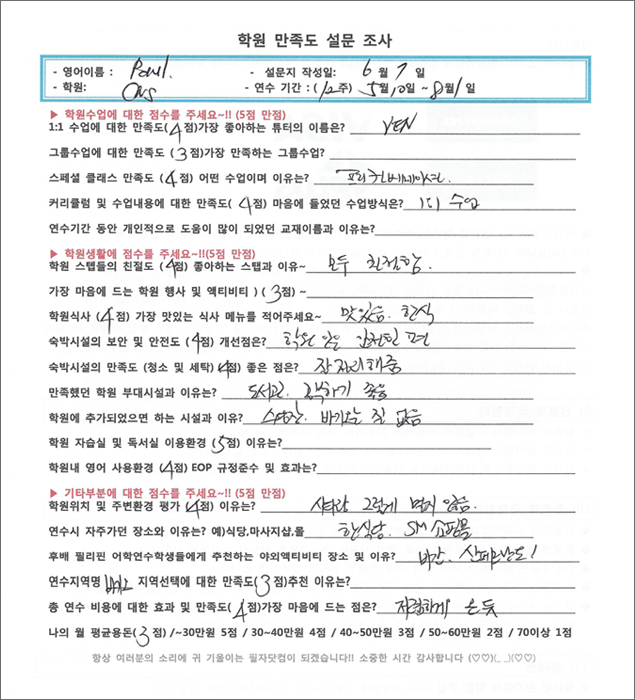 학원 만족도 설문 조사
- 영어이름 : Paul. - 설문지 작성일: 6 월 7 일
- 학원: CNS - 연수 기간 : (12주) 5월10일 ~ 8월1일
▶ 학원수업에 대한 점수를 주세요~!! (5점 만점)
1:1 수업에 대한 만족도(4점)가장 좋아하는 튜터의 이름은? VEN
그룹수업에 대한 만족도 (3점)가장 만족하는 그룹수업?
스페셜 클래스 만족도 (4점) 어떤 수업이며 이유는?
커리큘럼 및 수업내용에 대한 만족도( 4점) 마음에 들었던 수업방식은? 1:1 수업
연수기간 동안 개인적으로 도움이 많이 되었던 교재이름과 이유는?
▶ 학원생활에 점수를 주세요~!!(5점 만점)
학원 스텝들의 친절도 (4점) 좋아하는 스탭과 이유~ 모두 친절함.
가장 마음에 드는 학원 행사 및 액티비티 ) ( 3점) ~
학원식사 (4점) 가장 맛있는 식사 메뉴를 적어주세요~ 맛있음. 한식
숙박시설의 보안 및 안전도 (4점) 개선점은? 편
숙박시설의 만족도 (청소 및 세탁) (4점) 좋은 점은? 잘 처리해줌
만족했던 학원 부대시설과 이유는? 도서관. 공부하기 좋음
학원에 추가되었으면 하는 시설과 이유? 수영장. 없음
학원 자습실 및 독서실 이용환경 (5점) 이유는?
학원내 영어 사용환경 (4점) EOP 규정준수 및 효과는?
▶ 기타부분에 대한 점수를 주세요~!! (5점 만점)
학원위치 및 주변환경 평가 (4점) 이유는? 시티랑 그렇게 멀지 않음.
연수시 자주가던 장소와 이유는? 예)식당,마사지샵,몰 한식당. SM 쇼핑몰
후배 필리핀 어학연수학생들에게 추천하는 야외액티비티 장소 및 이유? 비간. 산페르난도!
연수지역명 바기오 지역선택에 대한 만족도(3점)추천 이유는?
총 연수 비용에 대한 효과 및 만족도(4점)가장 마음에 드는 점은? 저렴하게 온듯
나의 월 평균용돈(3점) /~30만원 5점 / 30~40만원 4점 / 40~50만원 3점 / 50~60만원 2점 / 70이상 1점
항상 여러분의 소리에 귀 기울이는 필자닷컴이 되겠습니다!! 소중한 시간 감사합니다 (♡♡)(_ _)(♡♡)